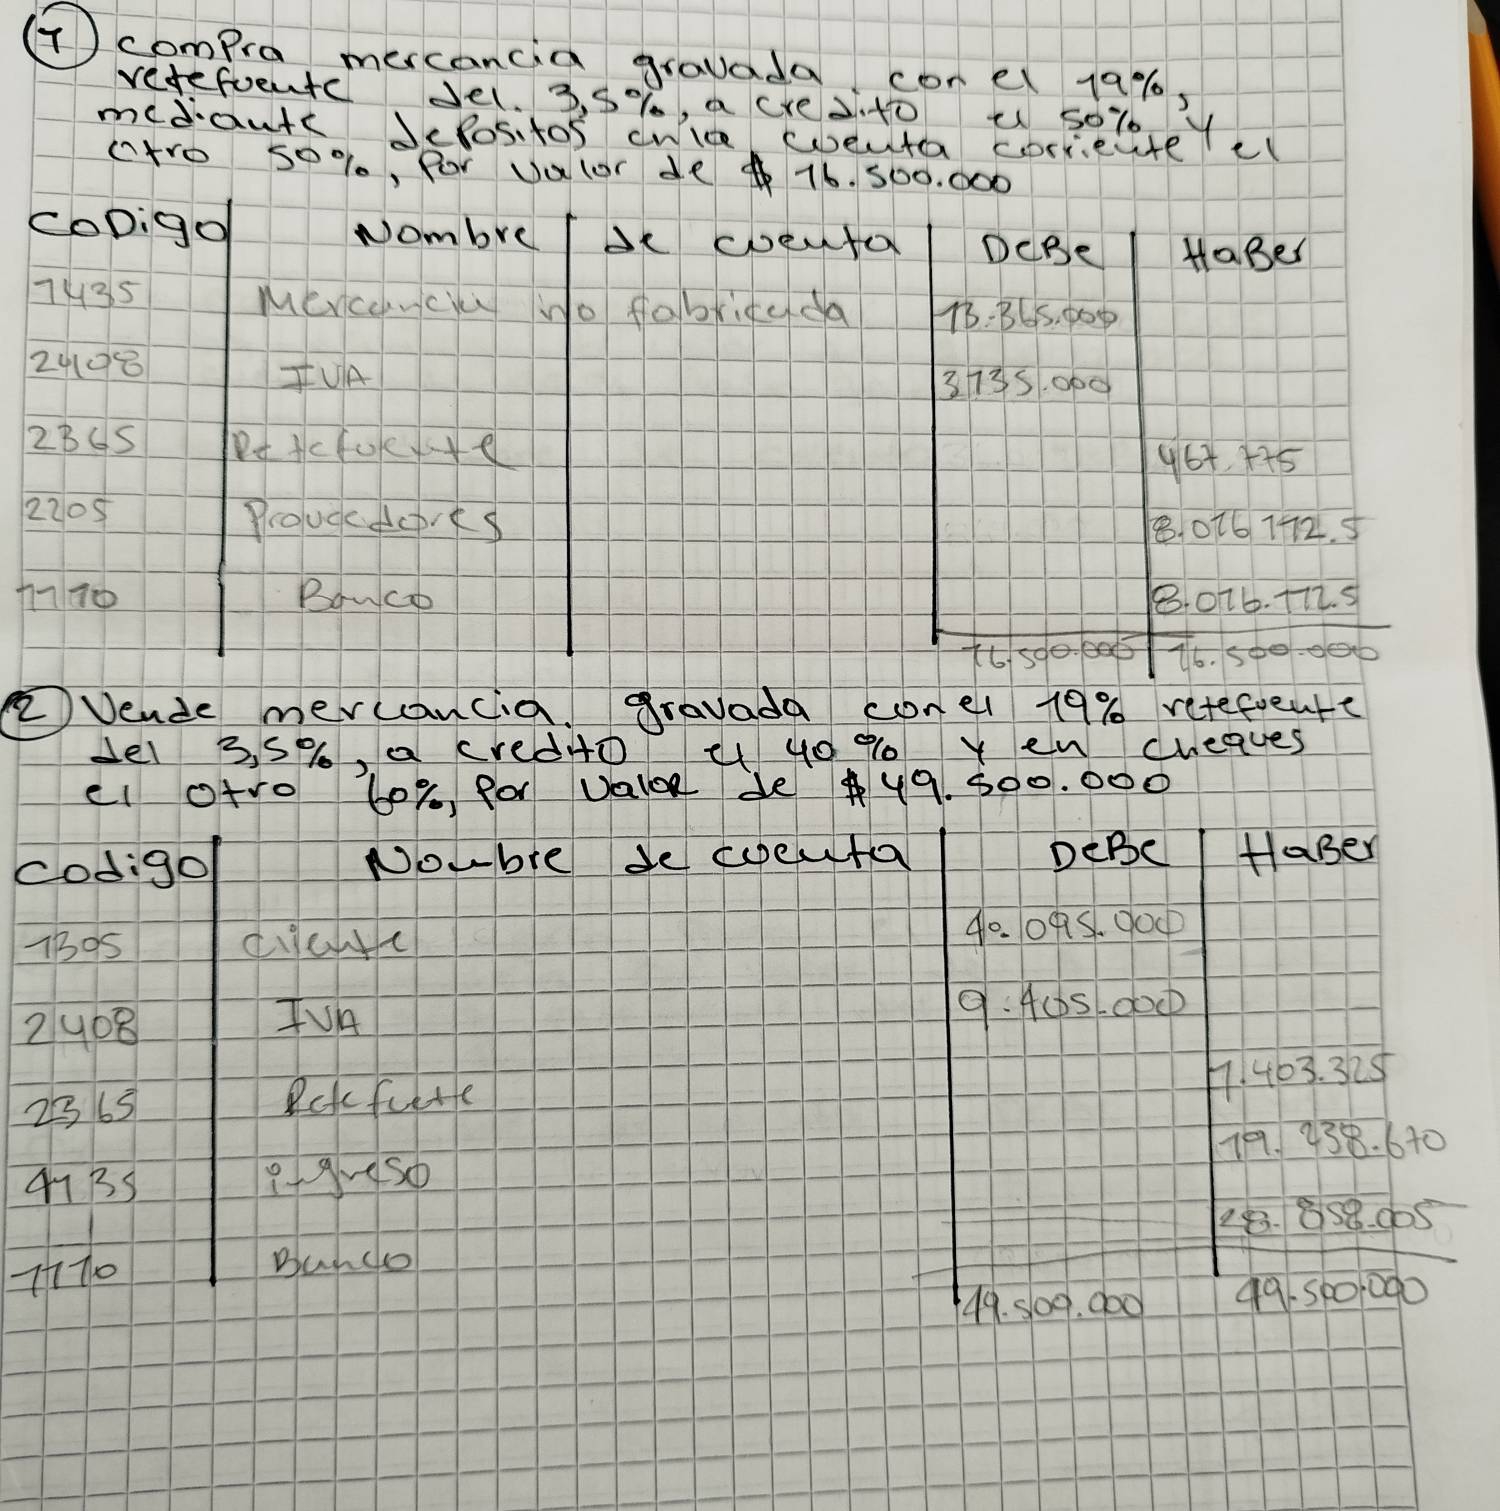 ① Compra mercancia gravada con el 19%,
retefuente del. 3,5%, a credito el 50% y
mediante depositos en la cuenta corriente el
otro 50%, Por valor de $ 16.500.000
CODigo Nombre de cuenta DeBe HaBer
1435 Mercancia no fabricada 13.365.000
2408 IVA 3135.000
2365 Retefuente 467.775
2205 Proveedores 8.016112.5
1110 Banco 8.016.112.5
16.500.000 16.500.000
② Vende mercancia. gravada con el 19% retefuente
del 3,5%, a credito el 40% y en cheques
el otro 60%, Por valor de $49.500.000
codigo Nombre de cuenta DeBe HaBer
1305 cliente 40.095.000
2408 IVA 9.405.000
2365 Retefuete 1.403.325
19.238.670
4135 ingreso
28.858.005
1110 Banco
49.500.000 49.500.000